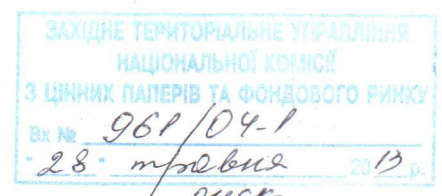 ЗАХІДНЕ ТЕРИТОРІАЛЬНЕ УПРАВЛІННЯ
НАЦІОНАЛЬНОЇ КОМІСІЇ
З ЦІННИХ ПАПЕРІВ ТА ФОНДОВОГО РИНКУ
Вх № 961/04-1
"28" травня 2013 р.
диск